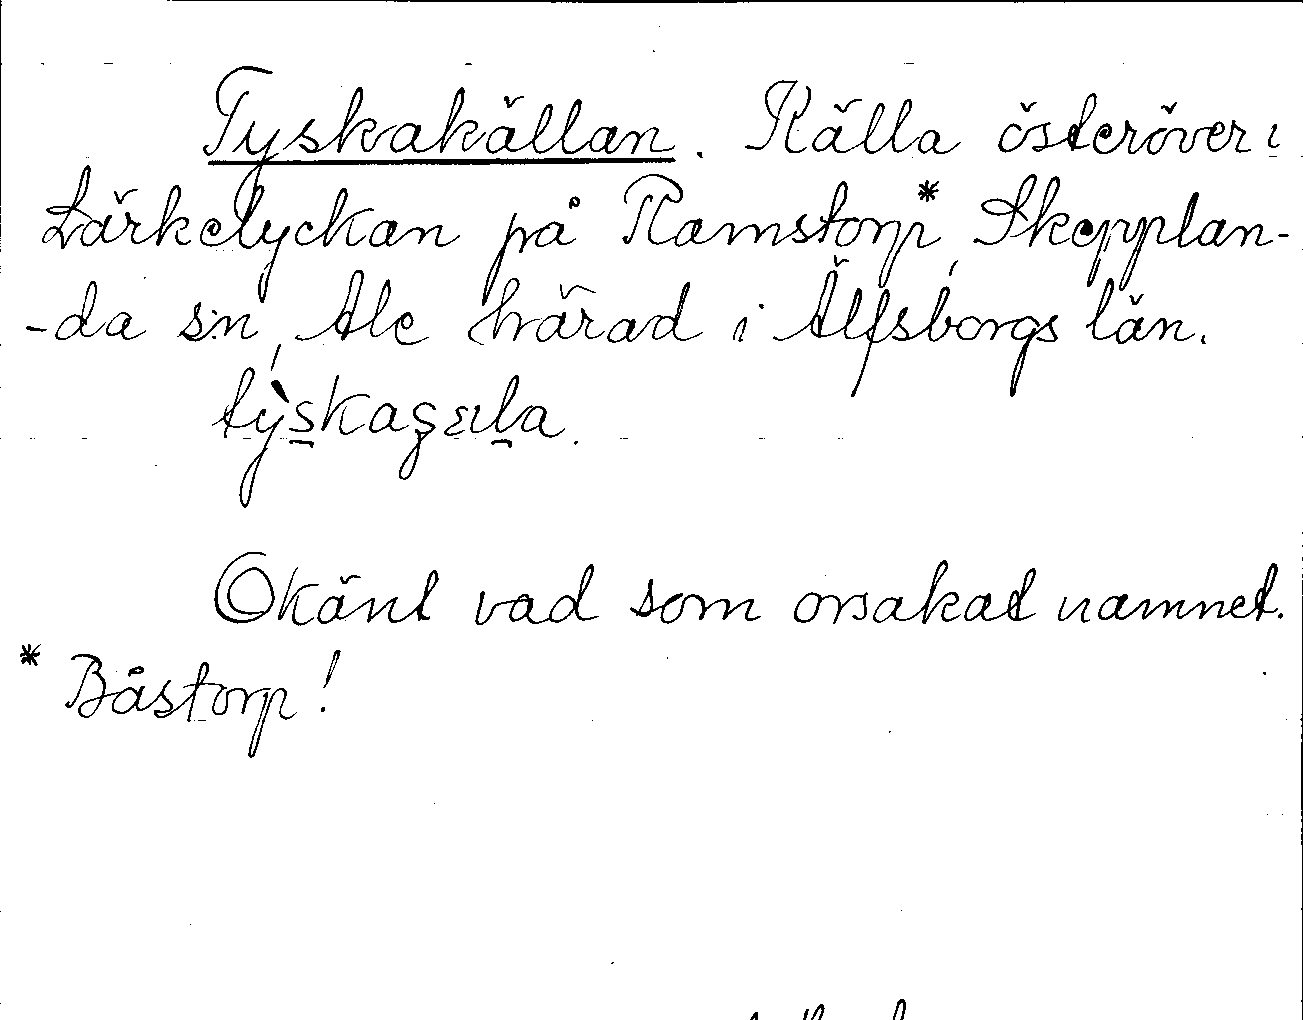 Tyskakällan. Källa österöver i
Lärkelyckan på Ramstorp*, Skepplan-
-da sn, Ale härad i Älfsborgs län.
Okänt vad som orsakat namnet.
* Båstorp!